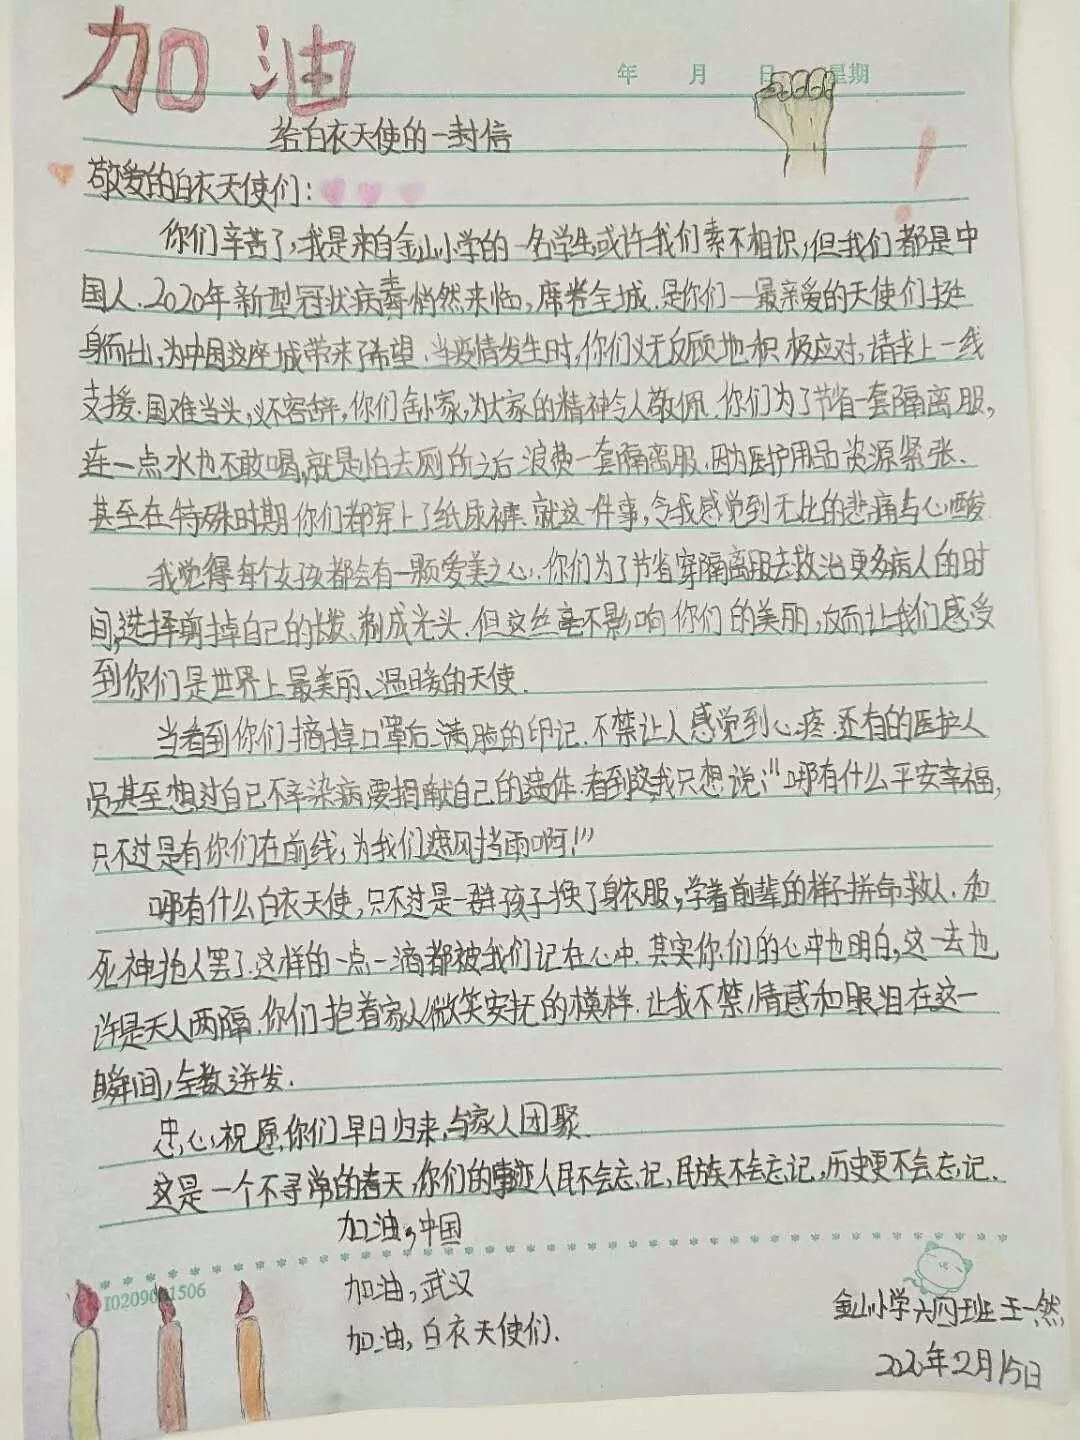 加油
年 月 日 星期
给白衣天使的一封信
敬爱的白衣天使们:
你们辛苦了,我是来自金山小学的一名学生或许我们素不相识,但我们都是中
国人.2020年新型冠状病毒悄然来临,席卷全城.是你们—最亲爱的天使们挺
身而出,为中国这座城带来了希望.当疫情发生时,你们义无反顾地积极应对,请求上一线
支援.国难当头,义不容辞,你们舍小家,为大家的精神令人敬佩.你们为了节省一套隔离服,
连一点水也不敢喝,就是怕去厕所之后浪费一套隔离服.因为医护用品资源紧张.
甚至在特殊时期你们都穿上了纸尿裤.就这一件事,令我感觉到无比的悲痛与心酸
我觉得每个女孩都会有一颗爱美之心.你们为了节省穿隔离服去救治更多病人的时
间,选择剪掉自己的长发、剃成光头.但这丝毫不影响你们的美丽,反而让我们感受
到你们是世界上最美丽、温暖的天使.
当看到你们摘掉口罩后满脸的印记.不禁让人感觉到心疼.还有的医护人
员甚至想过自己不幸染病要捐献自己的遗体.看到这我只想说:"哪有什么平安幸福,
只不过是有你们在前线,为我们遮风挡雨啊!"
哪有什么白衣天使,只不过是一群孩子换了身衣服,学着前辈的样子拼命救人.和
死神抢人罢了.这样的一点一滴都被我们记在心中.其实你们的心中也明白,这一去也
许是天人两隔.你们抱着家人微笑安抚的模样.让我不禁情感和眼泪在这一
瞬间,全数迸发.
忠心祝愿你们早日归来,与家人团聚.
这是一个不寻常的春天,你们的事迹人民不会忘记,民族不会忘记,历史更不会忘记.
加油,中国
加油,武汉
加油,白衣天使们.
金山小学六四班王一然
2020年2月15日